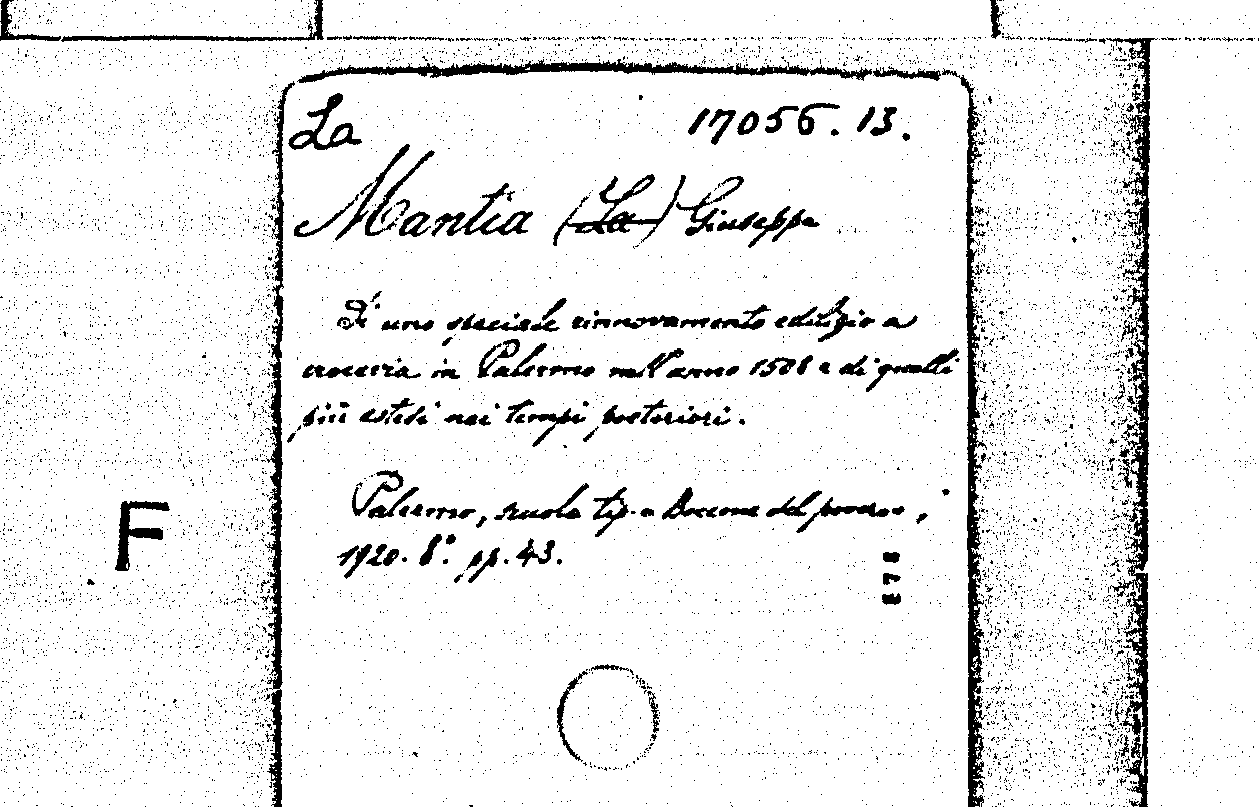 La 17056.13.
Mantia (La) Giuseppe
Di uno speciale rinnovamento edilizio a
crocevia in Palermo nell'anno 1508 e di quelli
più estesi nei tempi posteriori.
Palermo, scuola tip. Boccone del povero,
1920. 8°. pp. 43.
878
F